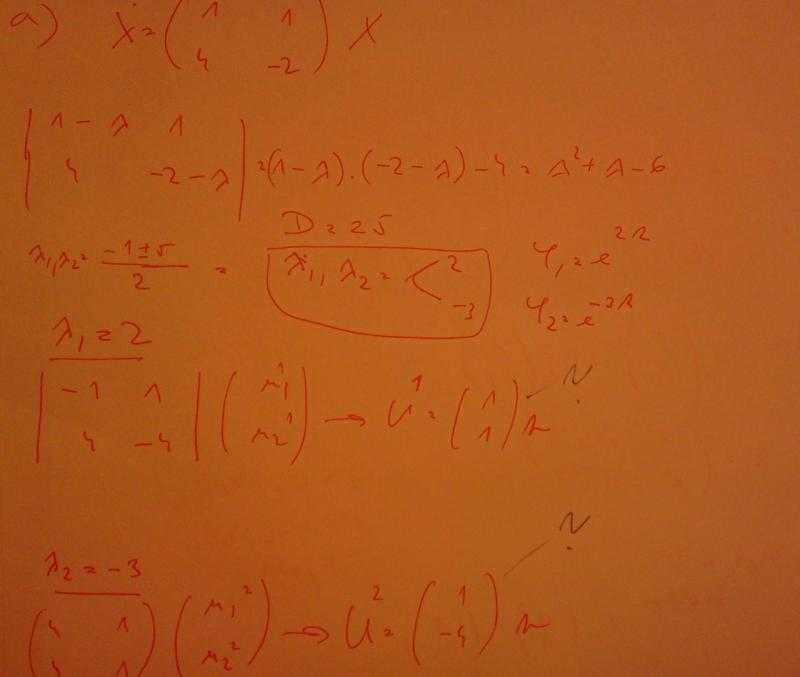 a) Ẋ = ( 1 1 ; 4 -2 ) X
| 1-λ 1 ; 4 -2-λ | = (1-λ).(-2-λ)-4 = λ²+λ-6
D = 25
λ₁,λ₂ = (-1±5)/2 = λ₁, λ₂ = < 2 ; -3
φ₁ = e
φ₂ = e
λ₁ = 2
| -1 1 ; 4 -4 | ( μ₁¹ ; μ₂¹ ) → U¹ = ( 1 ; 1 )
λ₂ = -3
( 4 1 ; 4 1 ) ( μ₁² ; μ₂² ) → U² = ( 1 ; -4 )